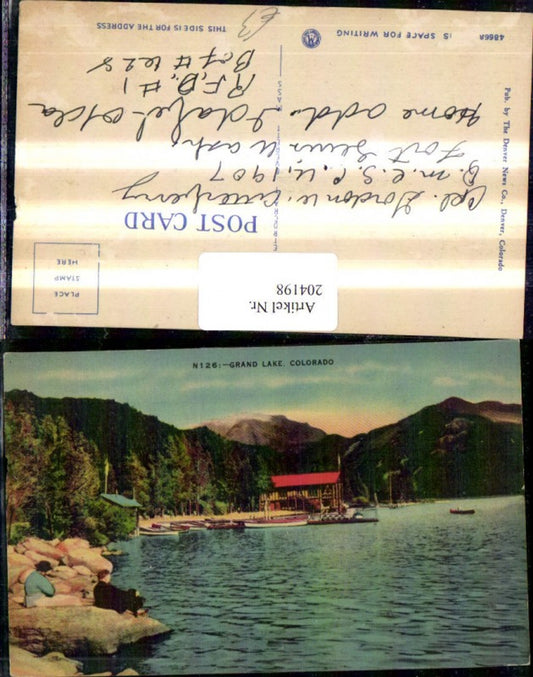 THIS SIDE IS FOR THE ADDRESS
IS SPACE FOR WRITING
4866R
63
Cpl. Gordon W.
B.M.E.S.C.U. 1907
Fort Lewis Wash.
Home add. Idabel Okla
R.F.D. #1
Box # 628
POST CARD
Pub. by The Denver News Co., Denver, Colorado
PLACE
STAMP
HERE
Artikel Nr.
204198
N126:—GRAND LAKE, COLORADO